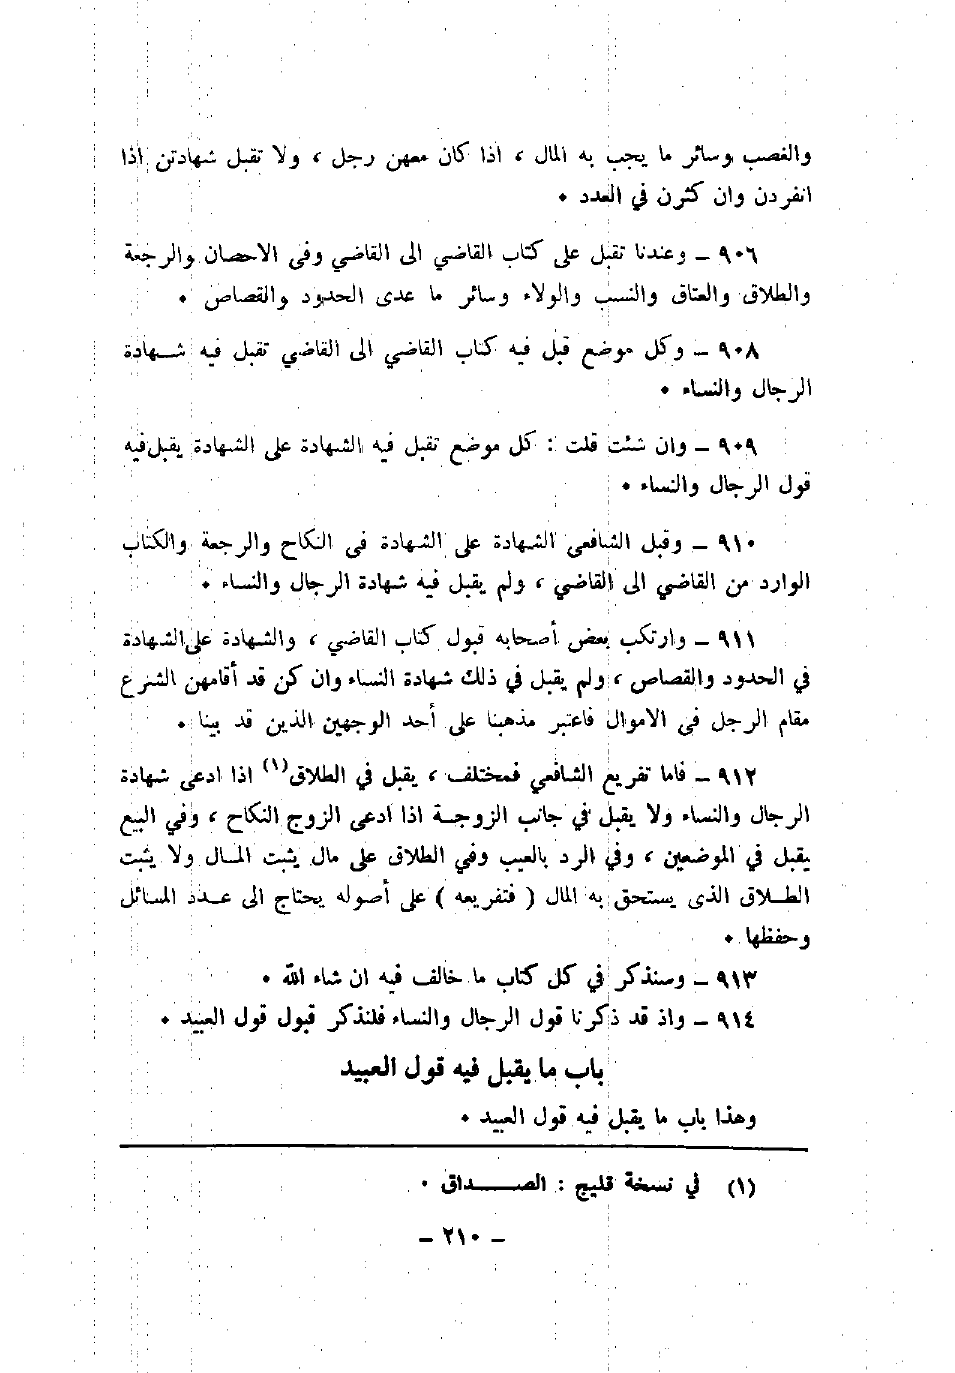 والغصب وسائر ما يجب به المال ، اذا كان معهن رجل ، ولا تقبل شهادتن اذا
انفردن وان كثرن في العدد ٠
٩٠٦ ــ وعندنا تقبل على كتاب القاضي الى القاضي وفى الاحصان والرجعة
والطلاق والعتاق والنسب والولاء وسائر ما عدى الحدود والقصاص ٠
٩٠٨ ــ وكل موضع قبل فيه كتاب القاضي الى القاضي تقبل فيه شـهادة
الرجال والنساء ٠
٩٠٩ ــ وان شئت قلت : كل موضع تقبل فيه الشهادة على الشهادة يقبل فيه
قول الرجال والنساء ٠
٩١٠ ــ وقبل الشافعي الشهادة على الشهادة فى النكاح والرجعة والكتاب
الوارد من القاضي الى القاضي ، ولم يقبل فيه شهادة الرجال والنساء ٠
٩١١ ــ وارتكب بعض أصحابه قبول كتاب القاضي ، والشهادة على الشهادة
في الحدود والقصاص ، ولم يقبل في ذلك شهادة النساء وان كن قد أقامهن الشرع
مقام الرجل فى الاموال فاعتبر مذهبنا على أحد الوجهين الذين قد بينا ٠
٩١٢ ــ فاما تفريع الشافعي فمختلف ، يقبل في الطلاق(١) اذا ادعى شهادة
الرجال والنساء ولا يقبل في جانب الزوجـة اذا ادعى الزوج النكاح ، وفي البيع
يقبل في الموضعين ، وفي الرد بالعيب وفي الطلاق على مال يثبت المـال ولا يثبت
الطـلاق الذى يستحق به المال ( فتفريعه ) على أصوله يحتاج الى عـدد المسائل
وحفظها ٠
٩١٣ ــ وسنذكر في كل كتاب ما خالف فيه ان شاء الله ٠
٩١٤ ــ واذ قد ذكرنا قول الرجال والنساء فلنذكر قبول قول العبيد ٠
باب ما يقبل فيه قول العبيد
وهذا باب ما يقبل فيه قول العبيد ٠
(١) في نسخة قليج : الصـــداق ٠
ــ ٢١٠ ــ